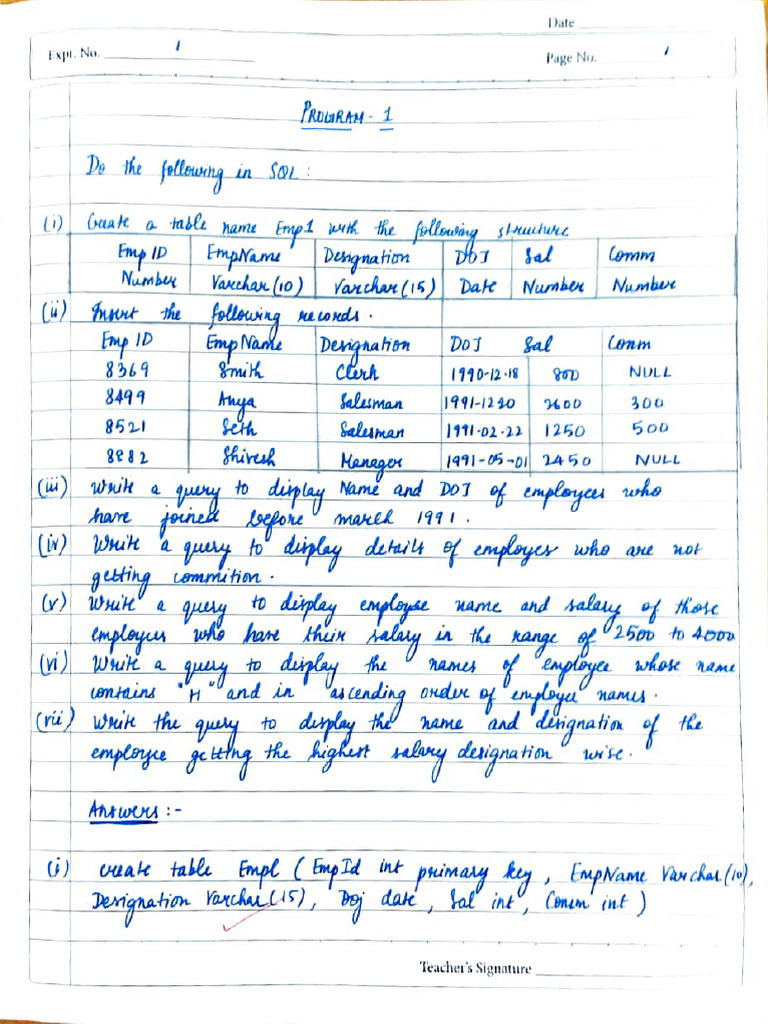 Date
Expt. No. 1
Page No. 1
PROGRAM - 1
Do the following in SQL :
(i) Create a table name Emp1 with the following structure
Emp ID EmpName Designation DOJ Sal Comm
Number Varchar (10) Varchar (15) Date Number Number
(ii) Insert the following records.
Emp ID EmpName Designation DOJ Sal Comm
8369 Smith Clerk 1990-12-18 800 NULL
8499 Anya Salesman 1991-1220 2600 300
8521 Seth Salesman 1991-02-22 1250 500
8882 Shivesh Manager 1991-05-01 2450 NULL
(iii) Write a query to display Name and DOJ of employees who
have joined before march 1991.
(iv) Write a query to display details of employes who are not
getting commition.
(v) Write a query to display employee name and salary of those
employees who have their salary in the range of 2500 to 4000
(vi) Write a query to display the names of employee whose name
contains "H" and in ascending order of employee names.
(vii) Write the query to display the name and designation of the
employee getting the highest salary designation wise.
Answers :-
(i) create table Empl ( EmpId int primary key, EmpName Varchar (10),
Designation Varchar (15), Doj date, Sal int, Comm int )
Teacher's Signature